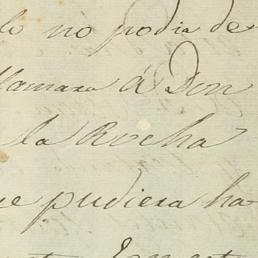 lo nó podia de
llamara á Don
la Rocha
ue pudiera ha